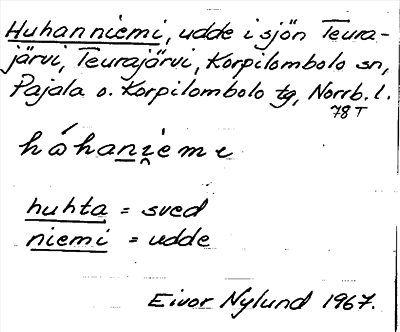 Huhanniemi, udde i sjön Teura-
järvi, Teurajärvi, Korpilombolo sn,
Pajala o. Korpilombolo tg, Norrb. l.
78 T
huhta = sved
niemi = udde
Eivor Nylund 1967.